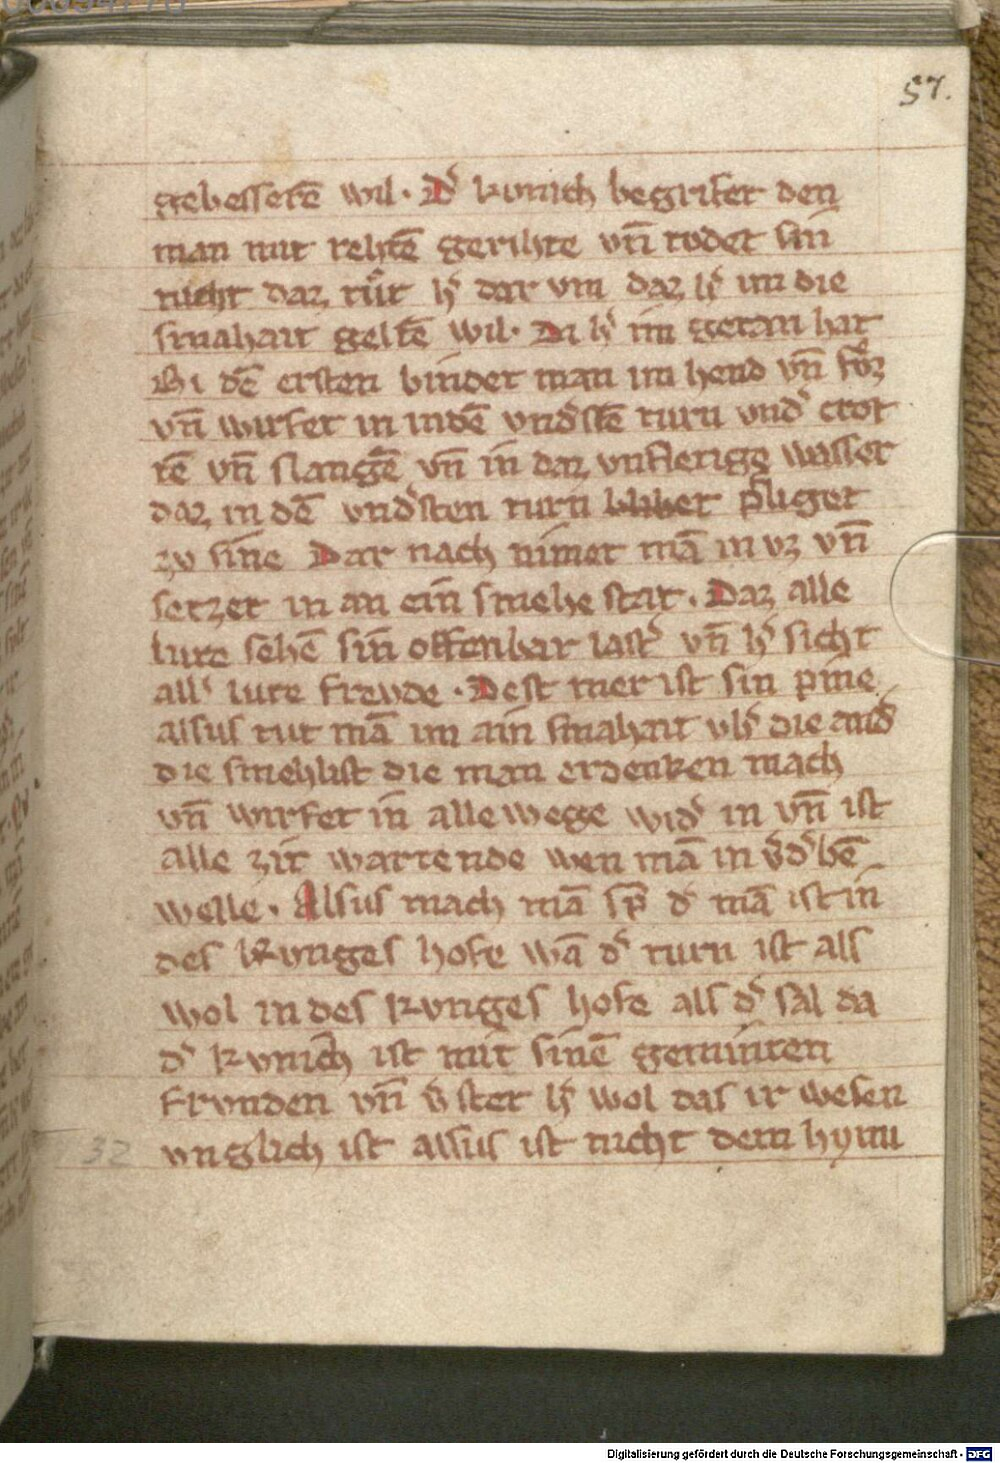 57.
gebesserē wil. Dʾ kvnich begrifet den
man mit rehtē gerihte vn̄ tödet sin
nicht daz tůt hʾ dar vm daz hʾ im die
smahait geltē wil. Di hʾ im getan hat
Bi dē ersten bindet man im hend vn̄ fvͦz
vn̄ wirfet in in dē vndʾstē turn vndʾ crot
tē vn̄ slangē vn̄ in daz vnfletige wasser
daz in dē vndʾsten turn pfliget
zv sine Dar nach nimet mā in vz vn̄
setzet in an ein smehe stat. Daz alle
lute sehē sin offenbar lastʾ vn̄ hʾ sicht
allʾ lute frevde. Dest mer ist sin pine
alsus tut mā im ain smahait vbʾ die andʾ
die smehlist die man erdenken mach
vn̄ wirfet in alle wege widʾ in vn̄ ist
alle zit wartende wen mā in v̄dʾbē
welle. Alsus mach mā sp̄ dʾ mā ist in
des kvnges hofe wā dʾ turn ist als
wol in des kvnges hofe als dʾ sal da
dʾ kvnich ist mit sinē geminten
frvnden vn̄ v̄stet hʾ wol das ir wesen
vnglich ist alsus ist nicht dem hym
32
Digitalisierung gefördert durch die Deutsche Forschungsgemeinschaft - DFG